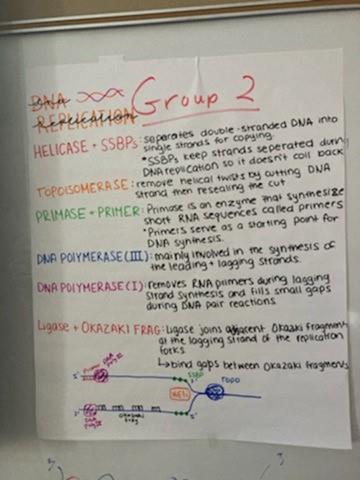 DNA
Replication
REPLICATION
Group 2
HELICASE + SSBPs: separates double-stranded DNA into
single strands for copying.
*SSBPs keep strands seperated during
DNA replication so it doesn't coil back
TOPOISOMERASE: remove helical twists by cutting DNA
strand then resealing the cut
PRIMASE + PRIMER: Primase is an enzyme that synthesize
short RNA sequences called primers
*Primers serve as a starting point for
DNA synthesis.
DNA POLYMERASE (III): mainly involved in the synthesis of
the leading + lagging strands.
DNA POLYMERASE (I): removes RNA primers during lagging
strand synthesis and fills small gaps
during DNA pair reactions.
Ligase + OKAZAKI FRAG: Ligase joins adjacent Okazaki fragments
at the lagging strand of the replication
forks.
↳ bind gaps between Okazaki fragments
Primer
SSBP
3'
TOPO
HELI
5'
OKAZAKI
frag
5'